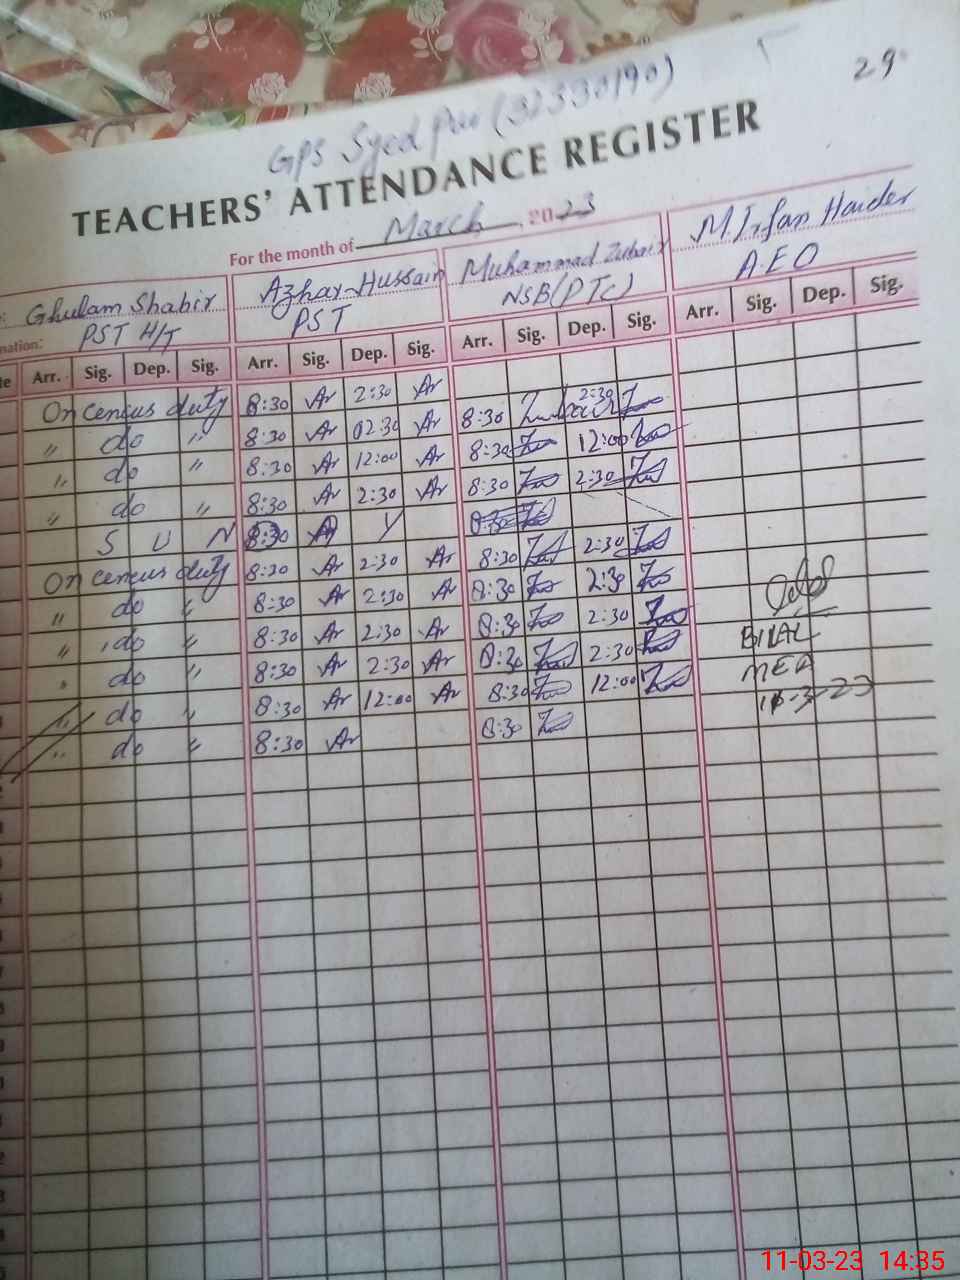 29
GPS Syed Pur (32330190)
TEACHERS' ATTENDANCE REGISTER
For the month of March, 2023
Ghulam Shabir Azhar Hussain Muhammad Zubair M. Irfan Haider
PST H/T PST NSB(PTC) A.E.O
nation:
te Arr. Sig. Dep. Sig. Arr. Sig. Dep. Sig. Arr. Sig. Dep. Sig. Arr. Sig. Dep. Sig.
On cencus duty 8:30 Ar 2:30 Ar
" do " 8:30 Ar 02:30 Ar 8:30 Zubair 2:30
" do " 8:30 Ar 12:00 Ar 8:30 12:00
" do " 8:30 Ar 2:30 Ar 8:30 2:30
S U N 8:30 Ar Y 8:30
On cencus duty 8:30 Ar 2:30 Ar 8:30 2:30
" do " 8:30 Ar 2:30 Ar 8:30 2:30
" do " 8:30 Ar 2:30 Ar 8:30 2:30
" do " 8:30 Ar 2:30 Ar 8:30 2:30
" do " 8:30 Ar 12:00 Ar 8:30 12:00
" do " 8:30 Ar 8:30
BILAL
MEA
11-3-23
11-03-23 14:35